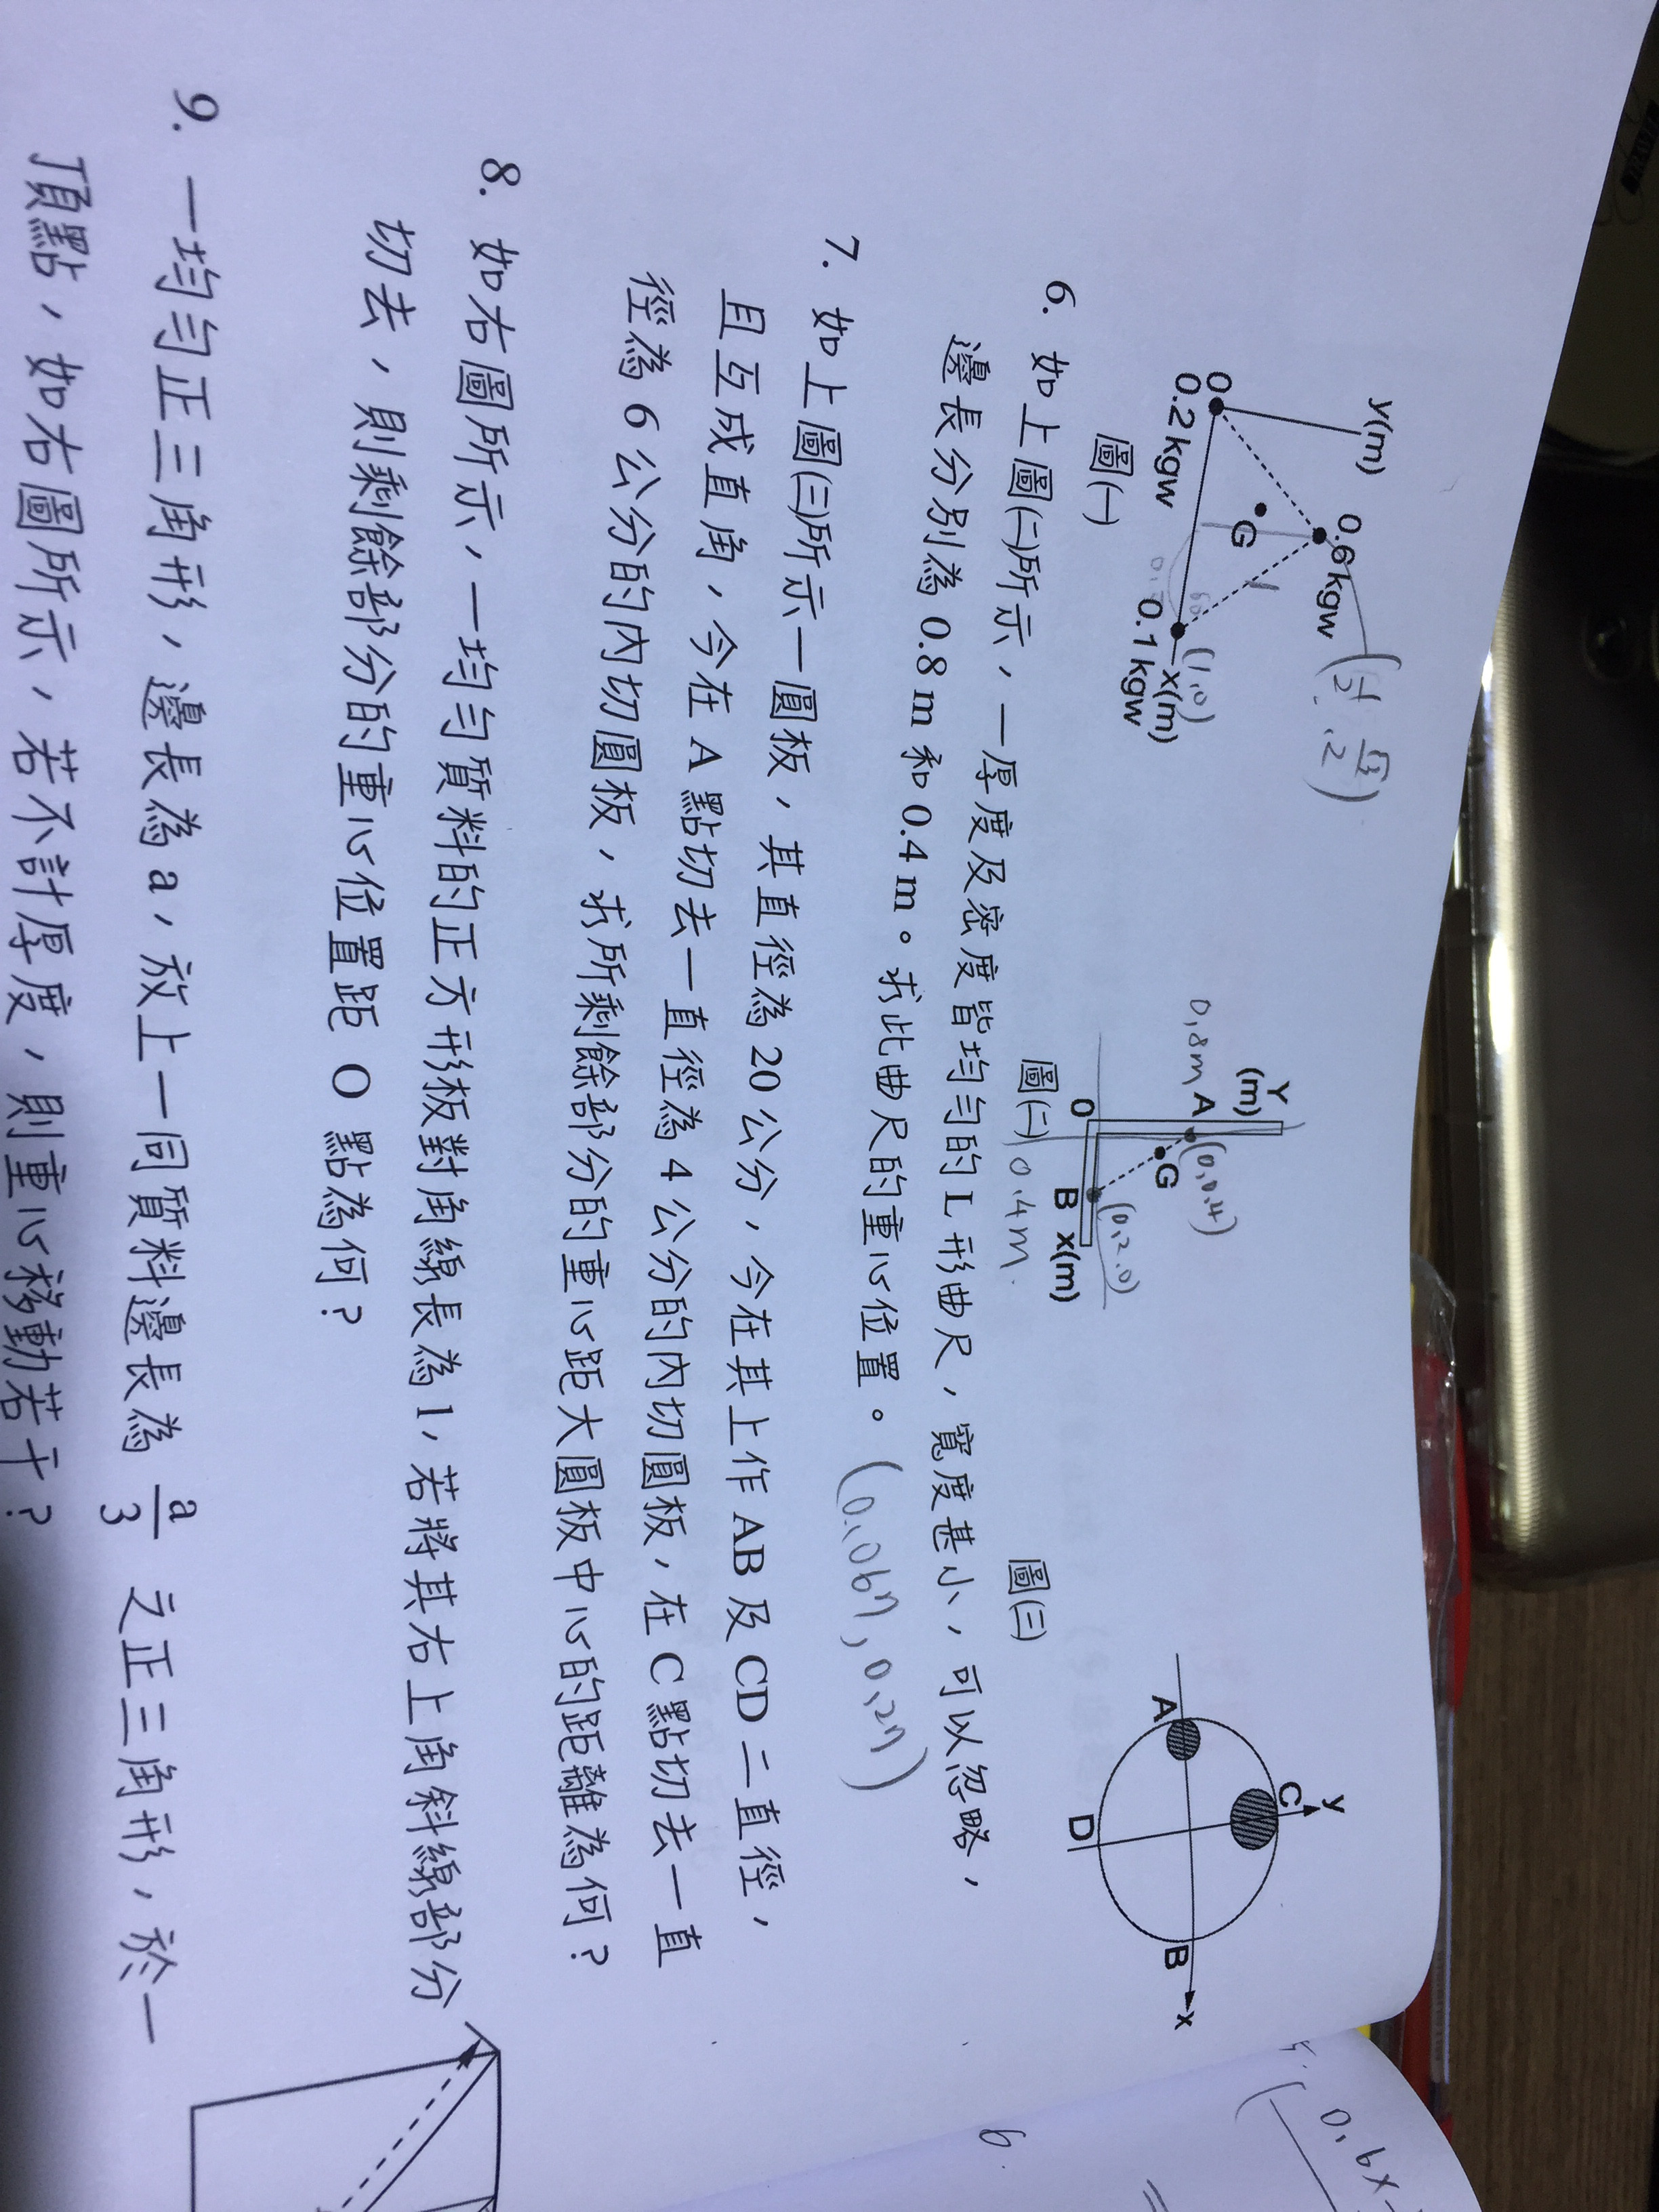 y(m)
0.6 kgw
(1/2, √3/2)
G
60
(1,0)
O
x(m)
0.2 kgw
0.1 kgw
圖(一)
Y
(m)
0.8m A
(0,0.4)
G
(0.2,0)
O
B
x(m)
圖(二)
0.4m
y
C
A
B
x
D
圖(三)
6. 如上圖(二)所示，一厚度及密度皆均勻的L形曲尺，寬度甚小，可以忽略，
邊長分別為 0.8 m 和 0.4 m。求此曲尺的重心位置。(0.067, 0.27)
7. 如上圖(三)所示一圓板，其直徑為 20 公分，今在其上作 AB 及 CD 二直徑，
且互成直角，今在 A 點切去一直徑為 4 公分的內切圓板，在 C 點切去一直
徑為 6 公分的內切圓板，求所剩餘部分的重心距大圓板中心的距離為何？
8. 如右圖所示，一均勻質料的正方形板對角線長為 l，若將其右上角斜線部分
切去，則剩餘部分的重心位置距 O 點為何？
9. 一均勻正三角形，邊長為 a，放上一同質料邊長為 a/3 之正三角形，於一
頂點，如右圖所示，若不計厚度，則重心移動若干？
0.6x
6.